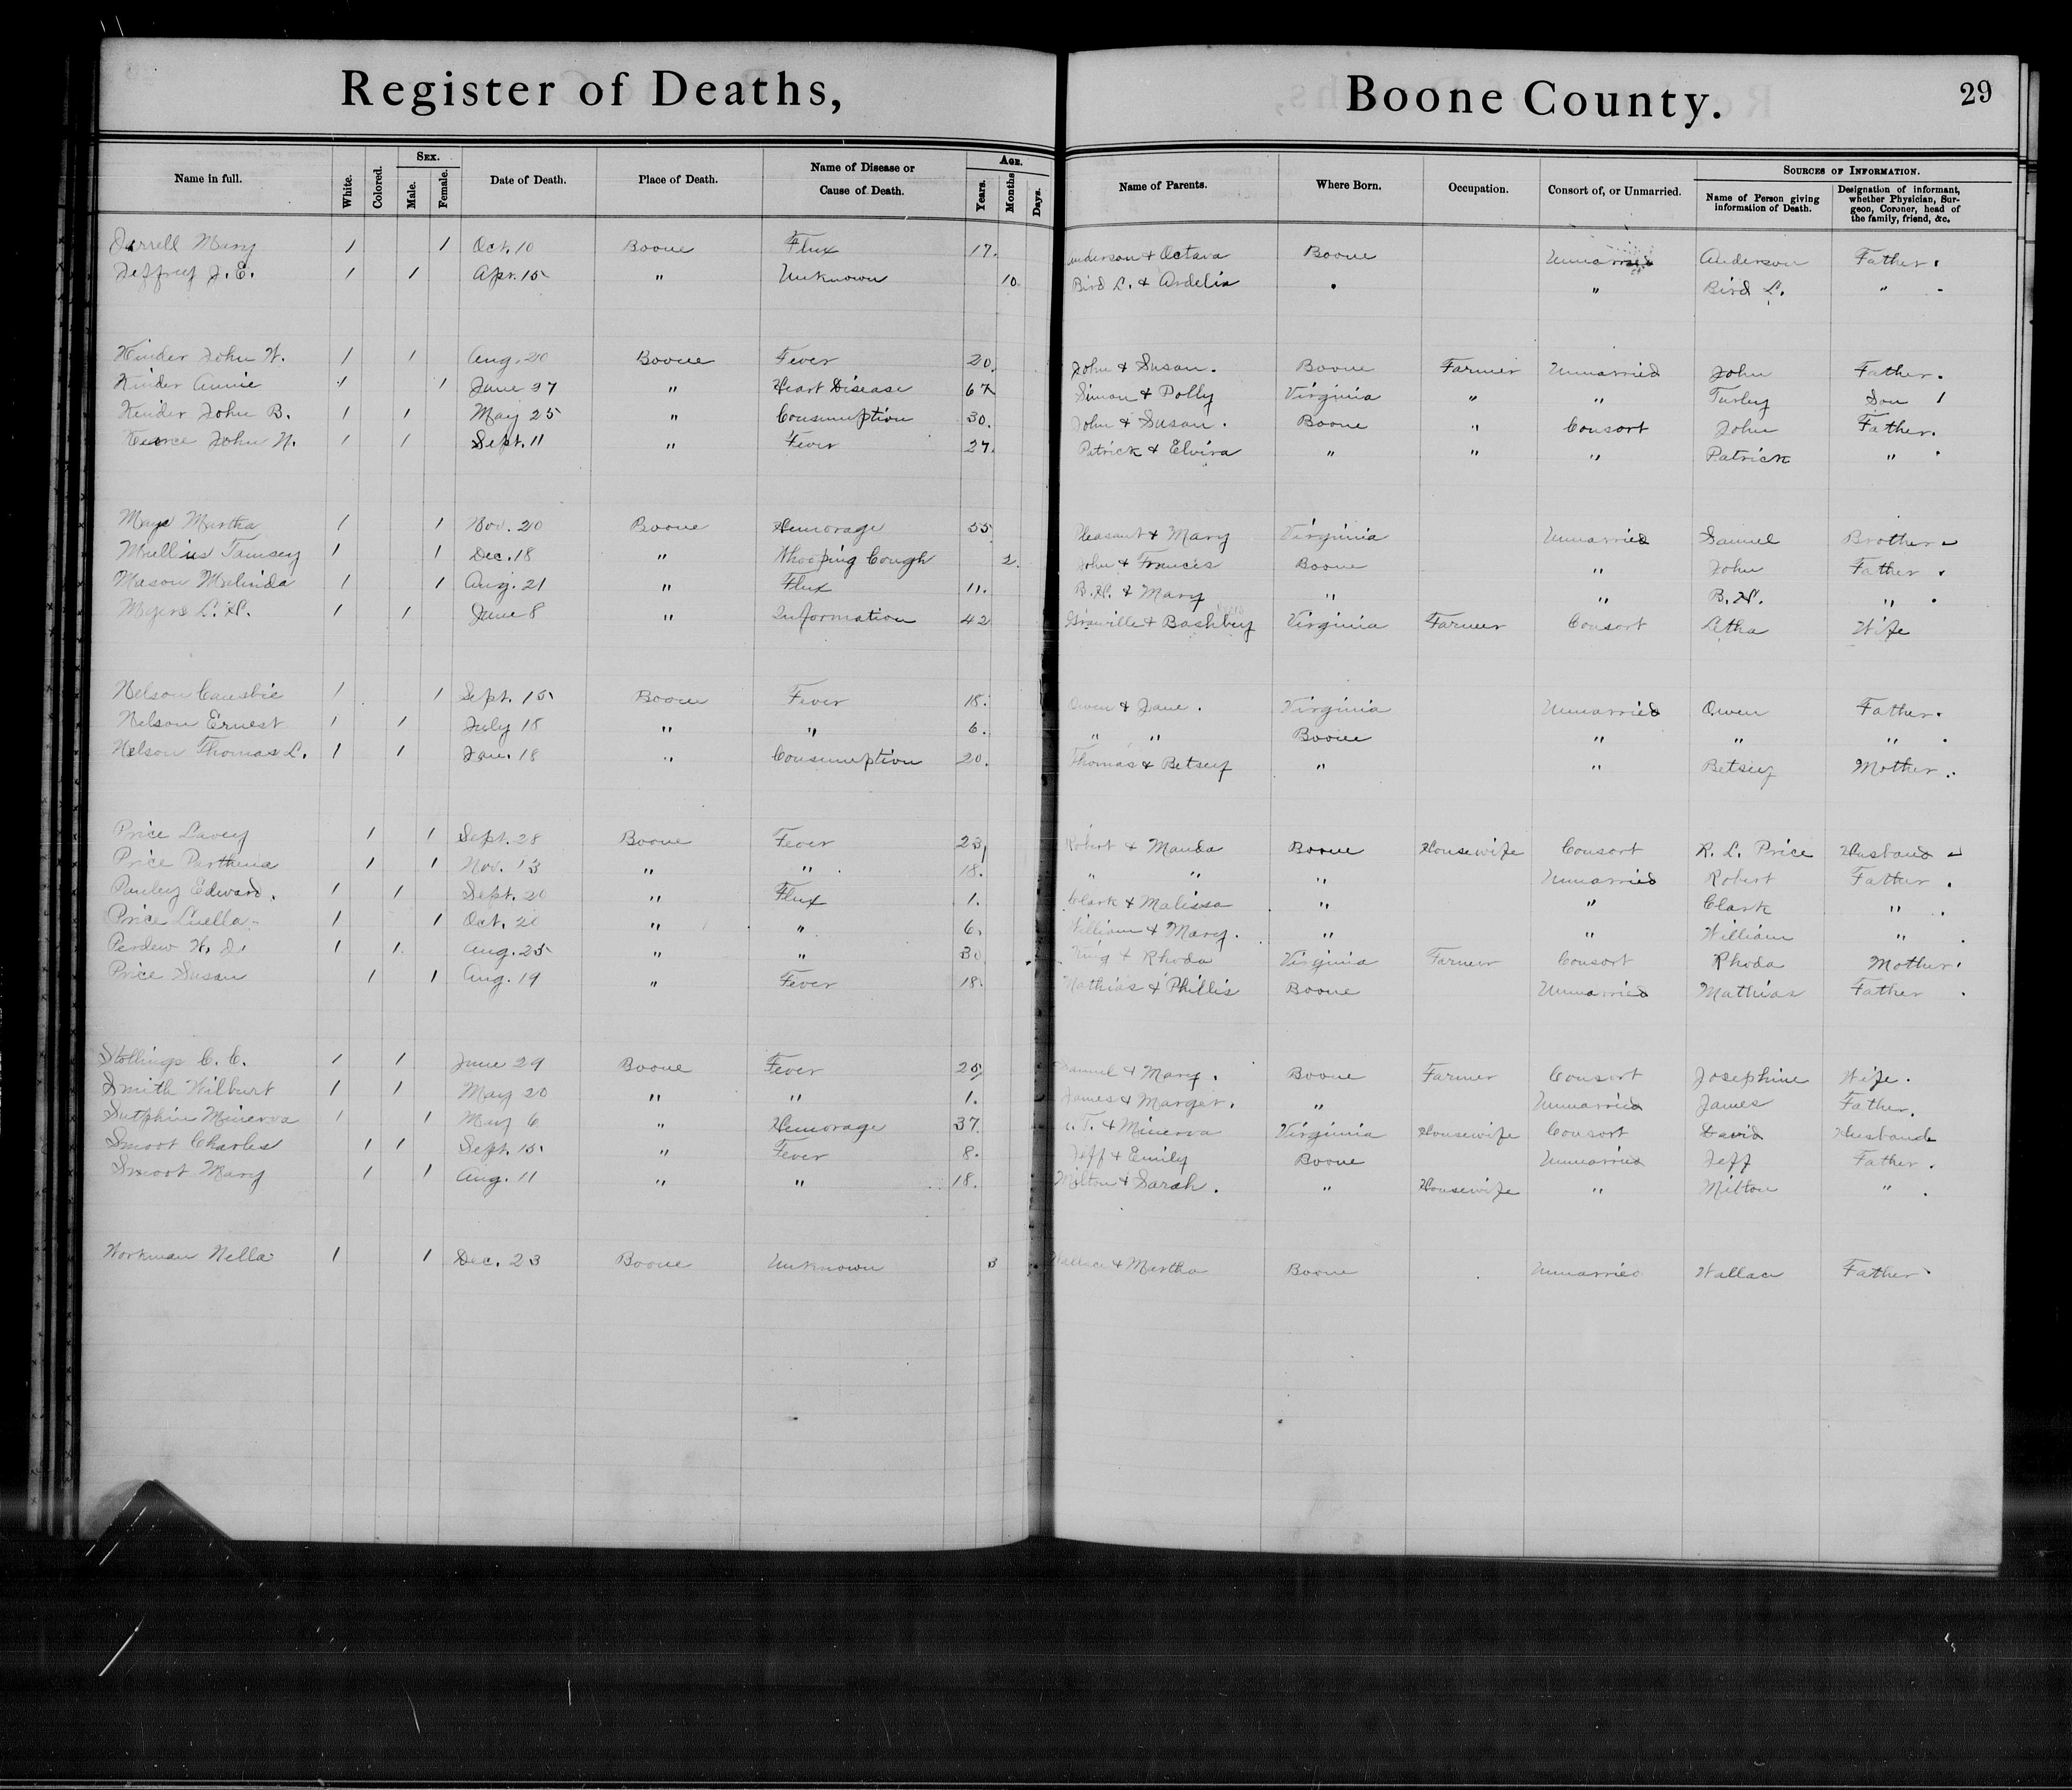 Register of Deaths, Boone County. 29
Name in full. White. Colored. Sex. Male. Female. Date of Death. Place of Death. Name of Disease or Cause of Death. Age. Years. Months Days. Name of Parents. Where Born. Occupation. Consort of, or Unmarried. Sources of Information. Name of Person giving information of Death. Designation of informant, whether Physician, Surgeon, Coroner, head of the family, friend, &c.
Jarrell Mary 1 1 Oct. 10 Boone Flux 17. Anderson & Octava Boone Unmarried Anderson Father.
Jeffrey J. E. 1 1 Apr. 15 " Unknown 10. Bird L. & Ardelia " Bird L. "
Kinder John W. 1 1 Aug. 20 Boone Fever 20. John & Susan. Boone Farmer Unmarried John Father.
Kinder Annie 1 1 June 27 " Heart Disease 67 Simon & Polly Virginia " " Turley Son
Kinder John B. 1 1 May 25 " Consumption 30. John & Susan. Boone " Consort John Father.
John N. 1 1 Sept. 11 " Fever 27. Patrick & Elvira " " " Patrick "
Mays Martha 1 1 Nov. 20 Boone Hemorage 55 Pleasant & Mary Virginia Unmarried Samuel Brother
Mullins Tamsey 1 1 Dec. 18 " Whooping Cough 2. John & Frances Boone " John Father
Mason Melinda 1 1 Aug. 21 " Flux 11. B. H. & Mary " " B. H. "
Myers L. H. 1 1 June 8 " Information 42 Granville & Bashbey Virginia Farmer Consort Letha Wife
Nelson 1 1 Sept. 15 Boone Fever 18. Owen & Jane. Virginia Unmarried Owen Father.
Nelson Ernest 1 1 July 18 " " 6. " " Boone " " "
Nelson Thomas L. 1 1 Jan. 18 " Consumption 20. Thomas & Betsey " " Betsey Mother.
Price Lavey 1 1 Sept. 28 Boone Fever 23, Robert & Manda Boone Housewife Consort R. L. Price Husband
Price Parthena 1 1 Nov. 13 " " 18. " " " Unmarried Robert Father.
Pauley Edward. 1 1 Sept. 20 " Flux 1. Clark & Malissa " " Clark "
Price Luella 1 1 Oct. 20 " " 6. William & Mary. " " William "
Perdew H. D. 1 1 Aug. 25 " " 30 King & Rhoda Virginia Farmer Consort Rhoda Mother.
Price Susan 1 1 Aug. 19 " Fever 18. Mathias & Phillis Boone Unmarried Mathias Father
Stollings C. C. 1 1 June 29 Boone Fever 25, Samuel & Mary. Boone Farmer Consort Josephine Wife.
Smith Wilburt 1 1 May 20 " " 1. James & Marger. " Unmarried James Father.
Sutphin Minerva 1 1 May 6 " Hemorage 37. T. & Minerva Virginia Housewife Consort David Husband
Smoot Charles 1 1 Sept. 15 " Fever 8. Jeff & Emily Boone Unmarried Jeff Father.
Smoot Mary 1 1 Aug. 11 " " 18. Milton & Sarah. " Housewife " Milton "
Workman Nella 1 1 Dec. 23 Boone Unknown 3 Wallace & Martha Boone Unmarried Wallace Father